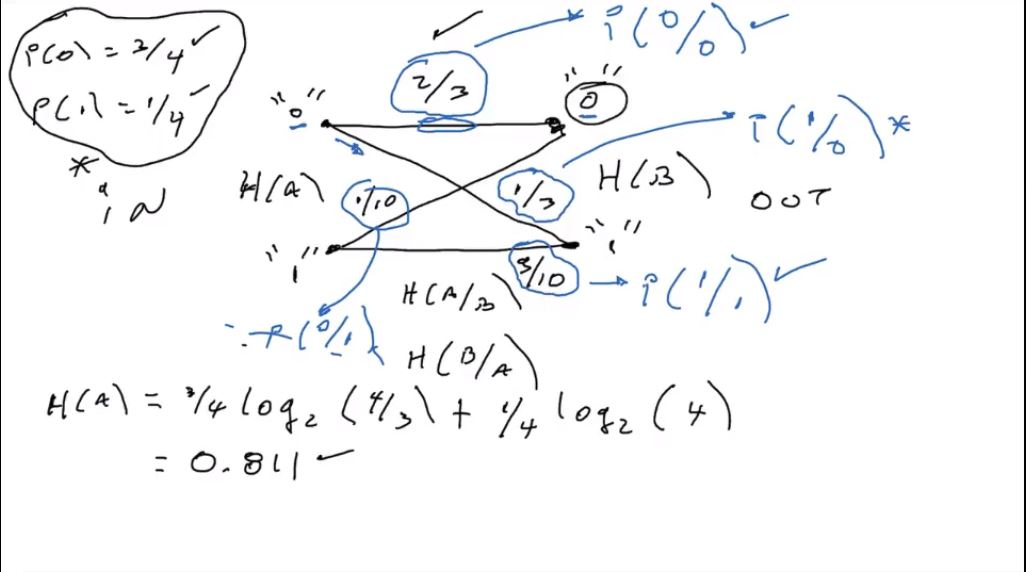 P(0) = 3/4 ✓
P(1) = 1/4 ✓
*
"in
✓
2/3
P(0/0) ✓
"0"
"0"
P(1/0) *
H(A)
1/10
1/3
H(B)
OUT
"1"
"1"
9/10
P(1/1) ✓
H(A/B)
P(0/1)
H(B/A)
H(A) = 3/4 log2 (4/3) + 1/4 log2 (4)
= 0.811 ✓